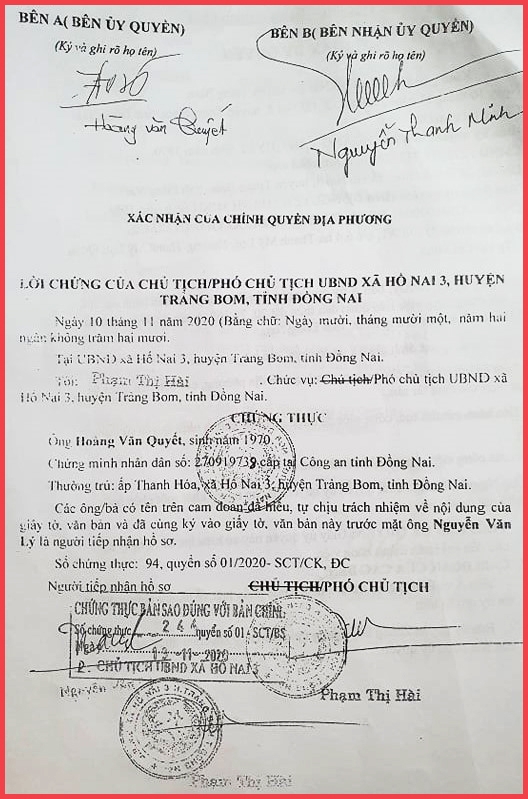 BÊN A( BÊN ỦY QUYỀN)
BÊN B( BÊN NHẬN ỦY QUYỀN)
(Ký và ghi rõ họ tên)
(Ký và ghi rõ họ tên)
Hoàng Văn Quyết
Nguyễn Thanh Minh
XÁC NHẬN CỦA CHÍNH QUYỀN ĐỊA PHƯƠNG
LỜI CHỨNG CỦA CHỦ TỊCH/PHÓ CHỦ TỊCH UBND XÃ HỐ NAI 3, HUYỆN
TRẢNG BOM, TỈNH ĐỒNG NAI
Ngày 10 tháng 11 năm 2020 (Bằng chữ: Ngày mười, tháng mười một, năm hai
ngàn không trăm hai mươi.
Tại UBND xã Hố Nai 3, huyện Trảng Bom, tỉnh Đồng Nai.
Tôi: Phạm Thị Hài . Chức vụ: Chủ tịch/Phó chủ tịch UBND xã
Hố Nai 3, huyện Trảng Bom, tỉnh Đồng Nai.
CHỨNG THỰC
Ông Hoàng Văn Quyết, sinh năm 1970.
Chứng minh nhân dân số: 270919739 cấp tại Công an tỉnh Đồng Nai.
Thường trú: ấp Thanh Hóa, xã Hố Nai 3, huyện Trảng Bom, tỉnh Đồng Nai.
Các ông/bà có tên trên cam đoan đã hiểu, tự chịu trách nhiệm về nội dung của
giấy tờ, văn bản và đã cùng ký vào giấy tờ, văn bản này trước mặt ông Nguyễn Văn
Lý là người tiếp nhận hồ sơ.
Số chứng thực: 94, quyển số 01/2020- SCT/CK, ĐC
Người tiếp nhận hồ sơ
CHỦ TỊCH/PHÓ CHỦ TỊCH
CHỨNG THỰC BẢN SAO ĐÚNG VỚI BẢN CHÍNH
Số chứng thực 244 quyển số 01 - SCT/BS
Ngày 12 -11- 2020
CHỦ TỊCH UBND XÃ HỐ NAI 3
Nguyễn Văn
Phạm Thị Hài
Phạm Thị Hài